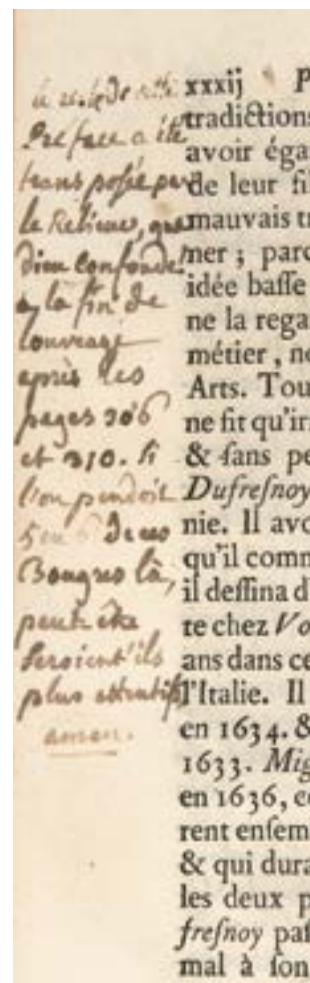 le reste de cette
Preface a été
transposée par
le Relieur, que
dieu confonde!
a la fin de
l'ouvrage
après les
pages 306
et 310. si
l'on pendoit
5 ou 6 de ces
Bougres là,
peut être
seroient ils
plus attentifs
amen.
xxxij P
tradictions
avoir éga
de leur fil
mauvais tr
ner ; parc
idée basse
ne la rega
métier, no
Arts. Tou
ne fit qu'ir
& sans pe
Dufresnoy
nie. Il avo
qu'il comm
il dessina d
te chez Vo
ans dans ce
l'Italie. Il
en 1634. &
1633. Mig
en 1636, c
rent ensem
& qui dura
les deux p
fresnoy pas
mal à son